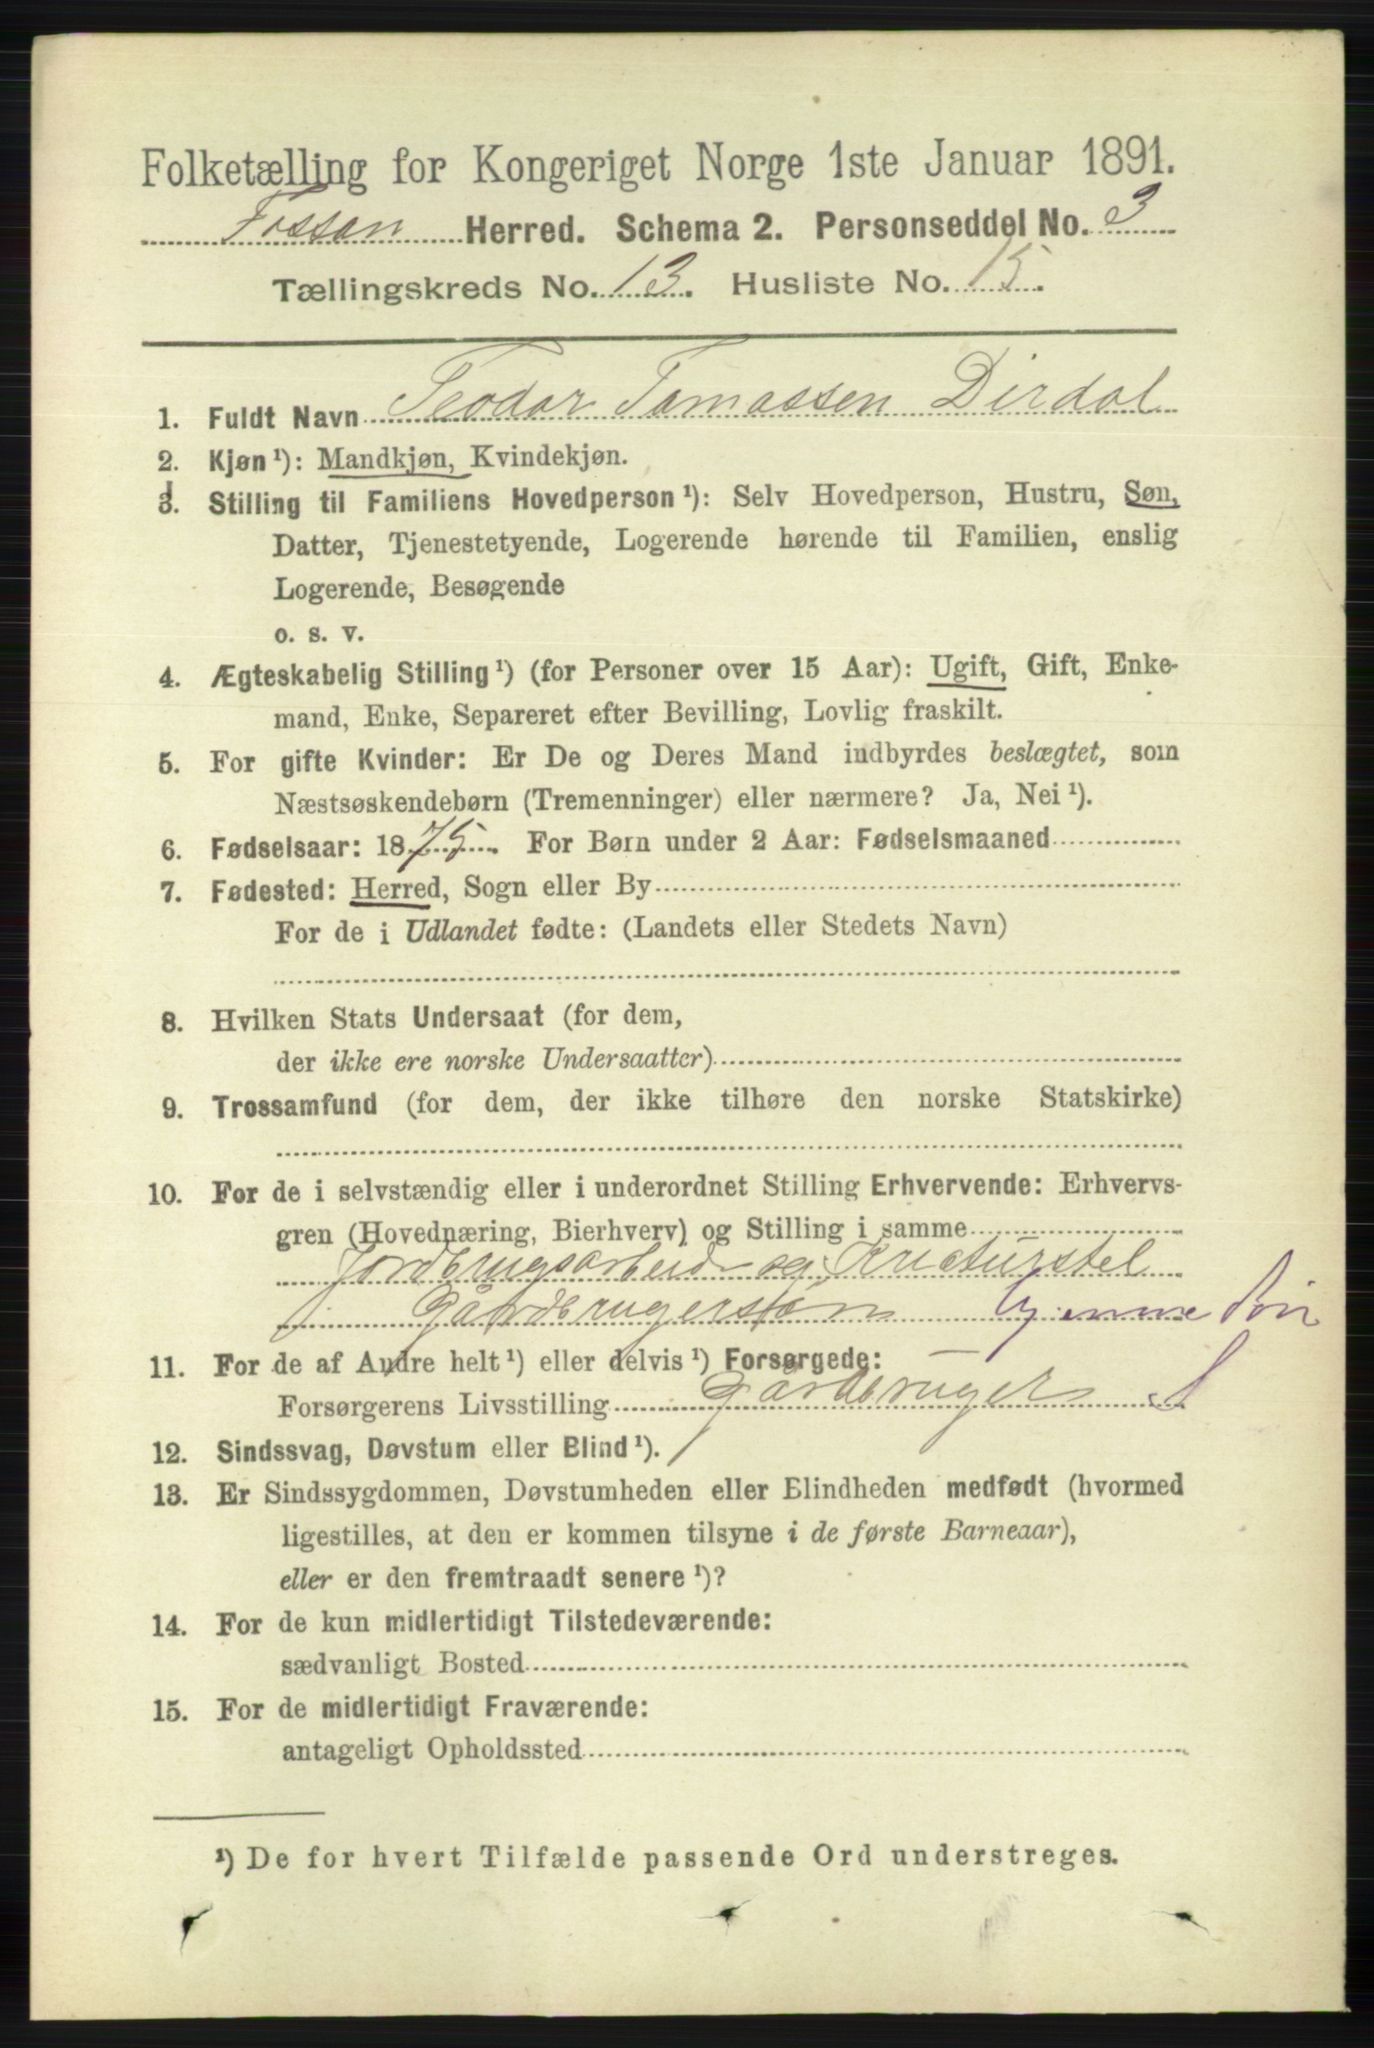 Folketælling for Kongeriget Norge 1ste Januar 1891.
Fossan Herred. Schema 2. Personseddel No. 3
Tællingskreds No. 13. Husliste No. 15.
1. Fuldt Navn Teodor Tomassen Dirdal
2. Kjøn ¹): Mandkjøn, Kvindekjøn.
3. Stilling til Familiens Hovedperson ¹): Selv Hovedperson, Hustru, Søn,
Datter, Tjenestetyende, Logerende hørende til Familien, enslig
Logerende, Besøgende
o. s. v.
4. Ægteskabelig Stilling ¹) (for Personer over 15 Aar): Ugift, Gift, Enke-
mand, Enke, Separeret efter Bevilling, Lovlig fraskilt.
5. For gifte Kvinder: Er De og Deres Mand indbyrdes beslægtet, som
Næstsøskendebørn (Tremenninger) eller nærmere? Ja, Nei ¹).
6. Fødselsaar: 1875. For Børn under 2 Aar: Fødselsmaaned
7. Fødested: Herred, Sogn eller By
For de i Udlandet fødte: (Landets eller Stedets Navn)
8. Hvilken Stats Undersaat (for dem,
der ikke ere norske Undersaatter)
9. Trossamfund (for dem, der ikke tilhøre den norske Statskirke)
10. For de i selvstændig eller i underordnet Stilling Erhvervende: Erhvervs-
gren (Hovednæring, Bierhverv) og Stilling i samme
Jordbrugsarbeid og Kreaturstel
Gaardbrugersøn hjemme
11. For de af Andre helt ¹) eller delvis ¹) Forsørgede:
Forsørgerens Livsstilling Gardbruger S
12. Sindssvag, Døvstum eller Blind ¹).
13. Er Sindssygdommen, Døvstumheden eller Blindheden medfødt (hvormed
ligestilles, at den er kommen tilsyne i de første Barneaar),
eller er den fremtraadt senere ¹)?
14. For de kun midlertidigt Tilstedeværende:
sædvanligt Bosted
15. For de midlertidigt Fraværende:
antageligt Opholdssted
¹) De for hvert Tilfælde passende Ord understreges.